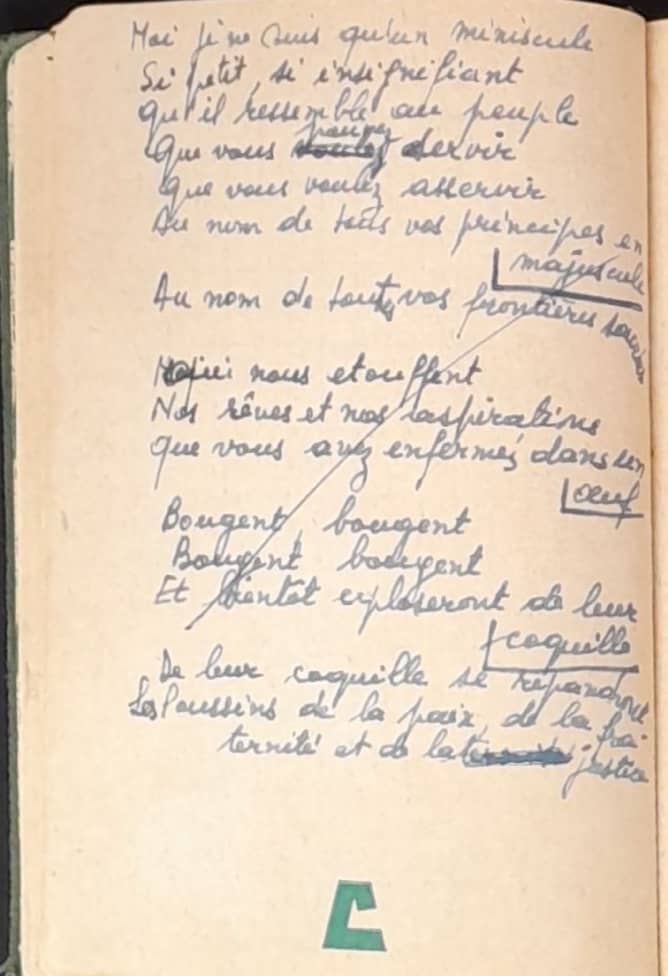 Moi je ne suis qu'un miniscule
Si petit, si insignifiant
qu'il ressemble au peuple
Que vous pouvez servir
que vous voulez asservir
Au nom de touts vos principes en
majuscule
Au nom de toutes vos frontières
qui nous etouffent
Nos rêves et nos aspirations
que vous avez enfermés dans un
œuf
Bougent, bougent
Bougent, bougent
Et bientôt exploseront de leur
coquille
De leur coquille se répandront
Les Poussins de la paix, de la fra-
ternité et de la justice
C